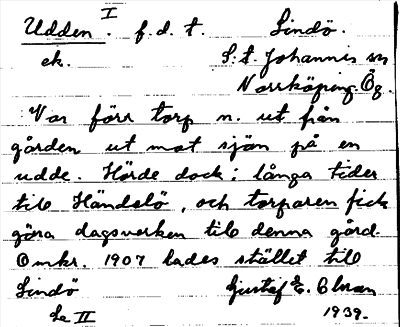 I
Udden. f.d.t. Lindö.
ek. S:t. Johannis sn
Norrköping. Ög.
Var förr torp n. ut från
gården ut mot sjön på en
udde. Hörde dock i långa tider
till Händelö, och torparen fick
göra dagsverken till denna gård.
Omkr. 1907 lades stället till
Lindö Gustaf E. Elman
Se II 1939.